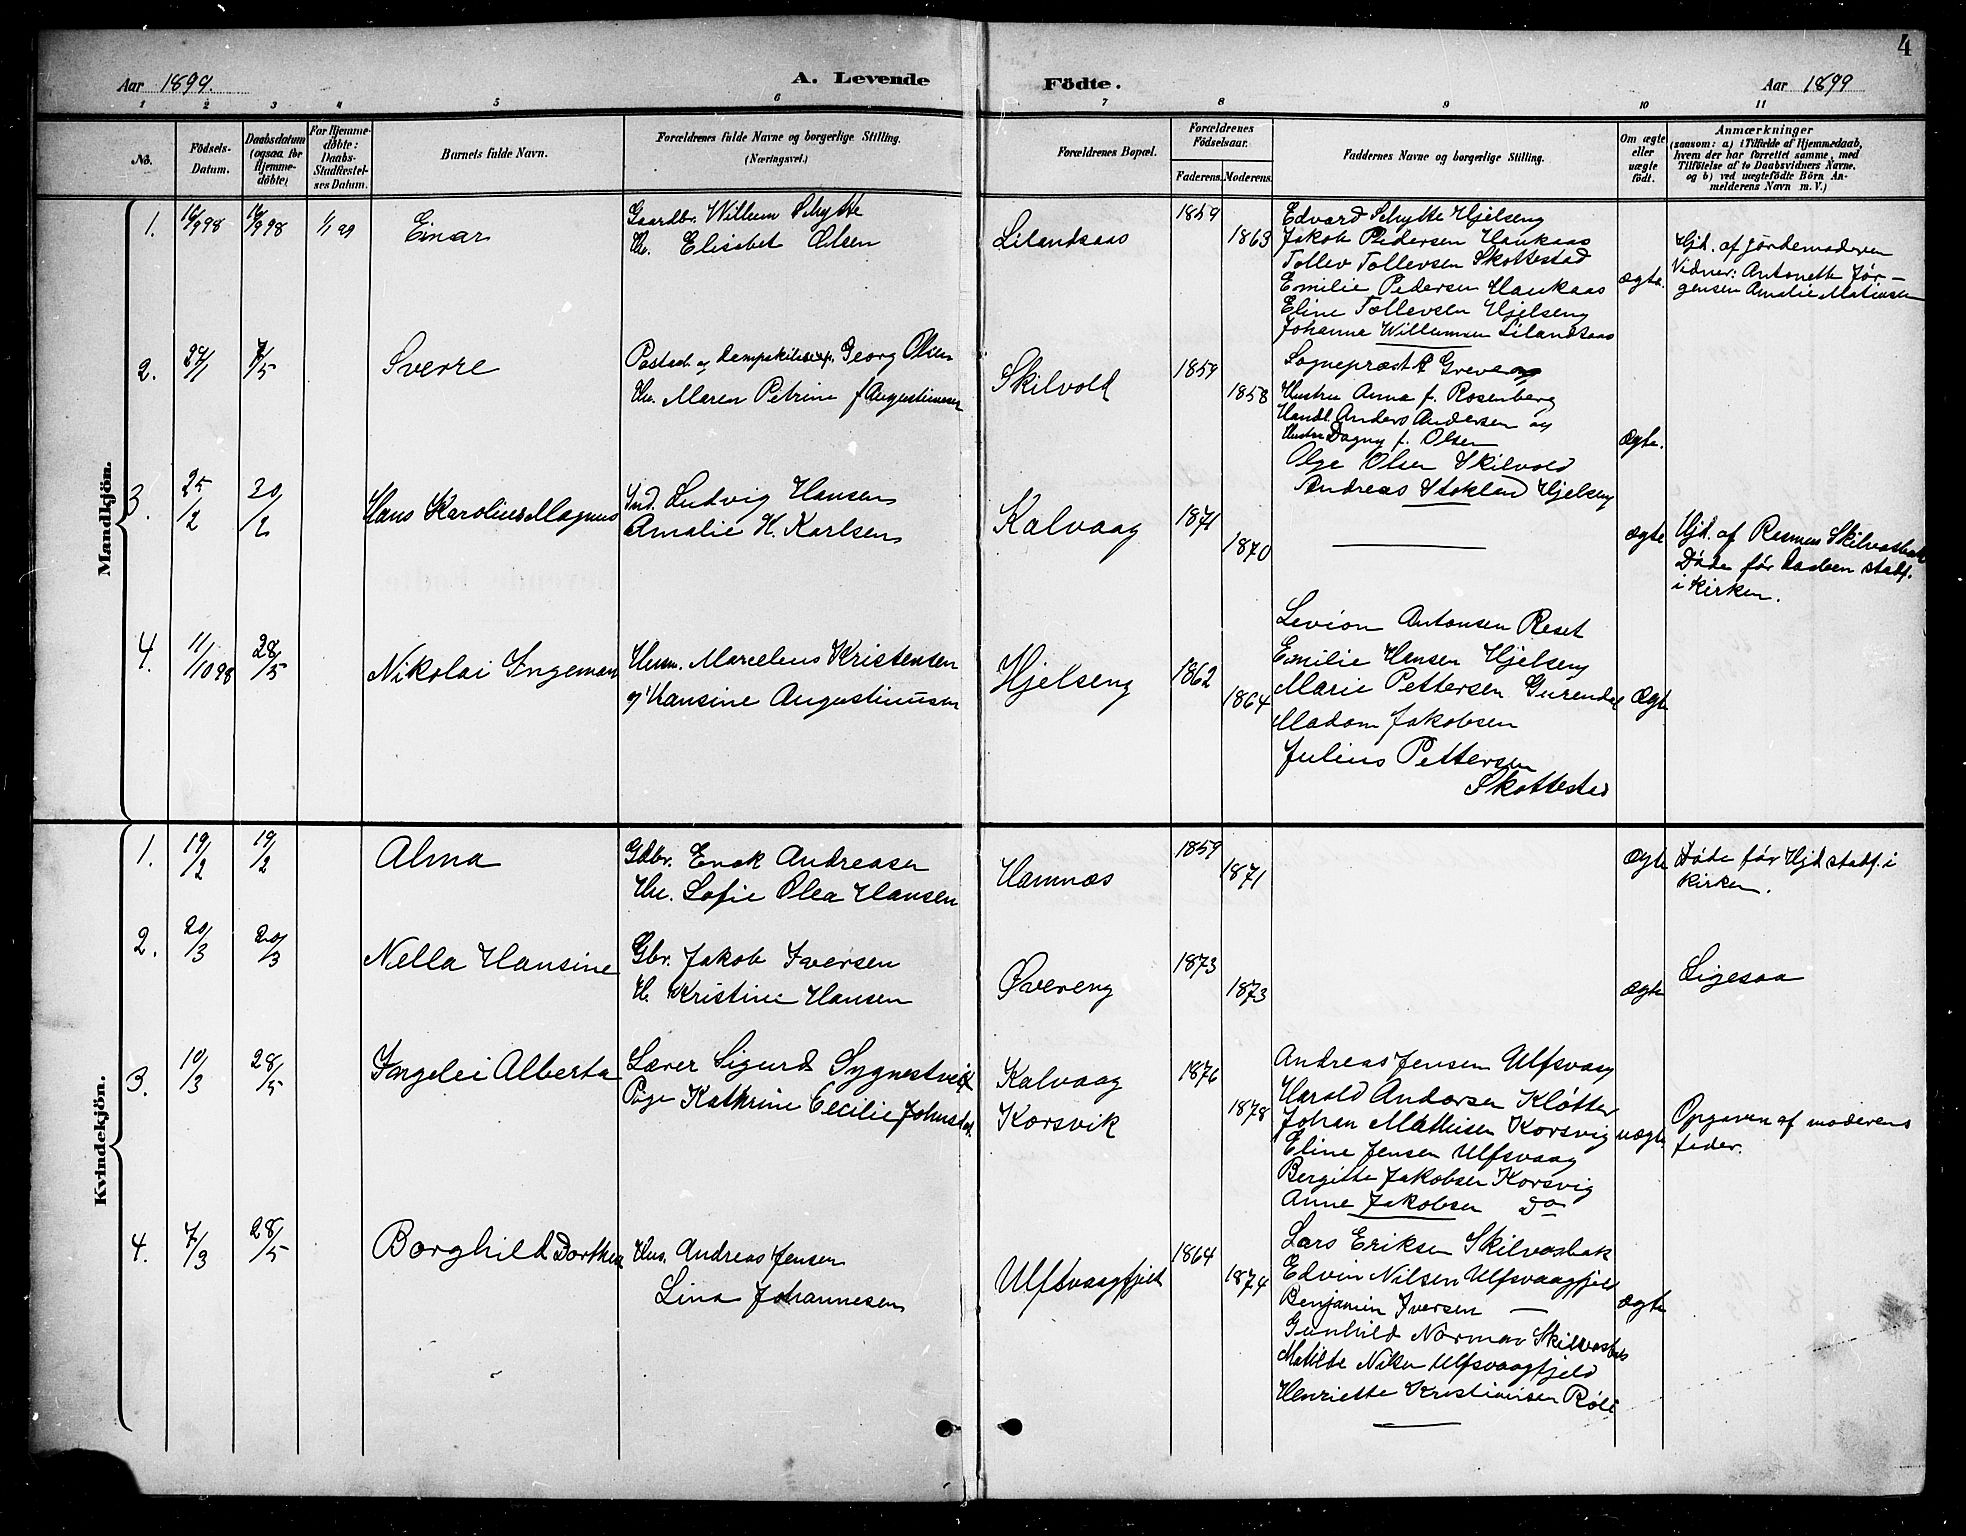 4
Aar 1899.
A. Levende
Födte.
Aar 1899
1 2 3 4 5 6 7 8 9 10 11
No.
Födsels-
Datum.
Daabsdatum
(ogsaa for
Hjemme-
döbte)
For Hjemme-
döbte:
Daabs-
Stadfæstel-
ses Datum.
Barnets fulde Navn.
Forældrenes fulde Navne og borgerlige Stilling.
(Næringsvei.)
Forældrenes Bopæl.
Forældrenes
Födselsaar.
Faderens. Moderens.
Faddernes Navne og borgerlige Stilling.
Om ægte
eller
uægte
födt.
Anmærkninger
(saasom: a) i Tilfælde af Hjemmedaab,
hvem der har forrettet samme, med
Tilföielse af to Daabsvidners Navne.
og b) ved uægtefödte Börn An-
melderens Navn m. V.)
Mandkjön.
1. 16/9 98 16/9 98 1/1 99 Einar
Gaardbr. Willum Schytte
Hu. Elisabet Olsen
Lilandsaas
1859
1863
Edvard Schytte Hjelseng
Jakob Pedersen Haukaas
Tollev Tollevsen Skottestad
Emilie Pedersen Haukaas
Eline Tollevsen Hjelseng
Johanna Willumsen Lilandsaas
ægte.
Hjd. af jordemoderen
Vidner: Antonette Jør-
gensen Amalie Matisen
2. 24/1 7/5 Sverre
Postaab. og dampskibsexp. Georg Olsen
Hu. Maren Petrine f Augustinusen
Skilvold
1859
1858
Sogneprest Greve og
Hustru Anna f. Rosenberg
Handl. Anders Andersen og
Hustru Dagny f. Olsen
Olga Olsen Skilvold
Andreas Stokland Hjelseng
ægte.
3. 25/2 20/2 Hans Karolius Magnus
Ind. Ludvig Hansen
Amalie H. Karlsen
Kalvaag
1871
1870
ægte
Hjd. af Rasmus Skilvasbak
Døde før daaben stadf.
i kirken.
4. 11/10 98 28/5 Nikolai Ingeman
Husm. Marcelius Kristensen
og Hansine Augustinusen
Hjelseng
1862
1864
Levion Antonsen Reset
Emilie Hansen Hjelseng
Marie Pettersen Gurendal
Madam Jakobsen
Julius Pettersen
Skottestad
ægte
Kvindekjön.
1. 19/2 19/2 Alma
Gdbr. Enok Andreasen
Hu. Sofie Olea Hansen
Hamnæs
1859
1871
ægte
Døde før Hjd stadf. i
kirken.
2. 20/3 20/3 Nella Hansine
Gbr. Jakob Iversen
H. Kristine Hansen
Øvereng
1873
1873
ægte
Ligesaa
3. 10/3 28/5 Ingelei Alberta
Lærer Sigurd Sygnestveit
Pige Kathrine Cecilie Johnsdat.
Kalvaag
Korsvik
1876
1878
Andreas Jensen Ulfsvaag
Harold Andersen Kløtter
Johan Mathisen Korsvig
Eline Jensen Ulfsvaag
Bergitte Jakobsen Korsvig
Anne Jakobsen Do
uægte
Opgaven af moderens
fader.
4. 7/3 28/5 Borghild Dorthea
Hus. Andreas Jensen
Lina Johannesen
Ulfsvaagfjeld
1864
1874
Lars Eriksen Skilvasbak
Edvin Nilsen Ulfsvaagfjeld
Benjamin Iversen —
Gunhild Norman Skilvasbak
Matilde Nilsen Ulfsvaagfjeld
Henriette Kristiansen Røli
ægte